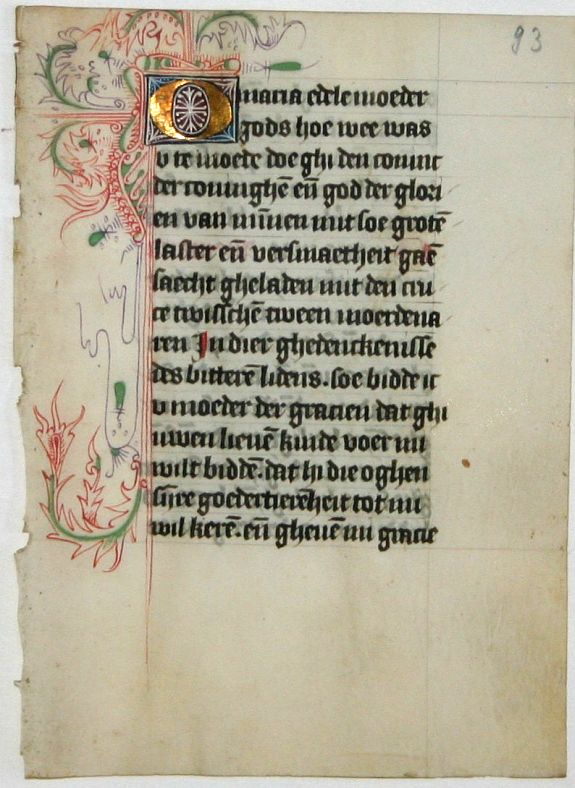 93
O maria edele moeder
gods hoe wee was
v te moede doe ghi den coninc
der coninghē eñ god der glori
en van minnen mit soe grotē
laster eñ versmaetheit gaē
saecht gheladen mit den cru
ce twisschē tween moerdena
ren In dier ghedenckenisse
des bitterē lidens. soe bidde ic
v moeder der gracien dat ghi
uwen lieuē kinde voer mi
wilt biddē. dat hi die oghen
sijnre goedertierēheit tot mi
wil kerē. eñ gheuē mi gracie